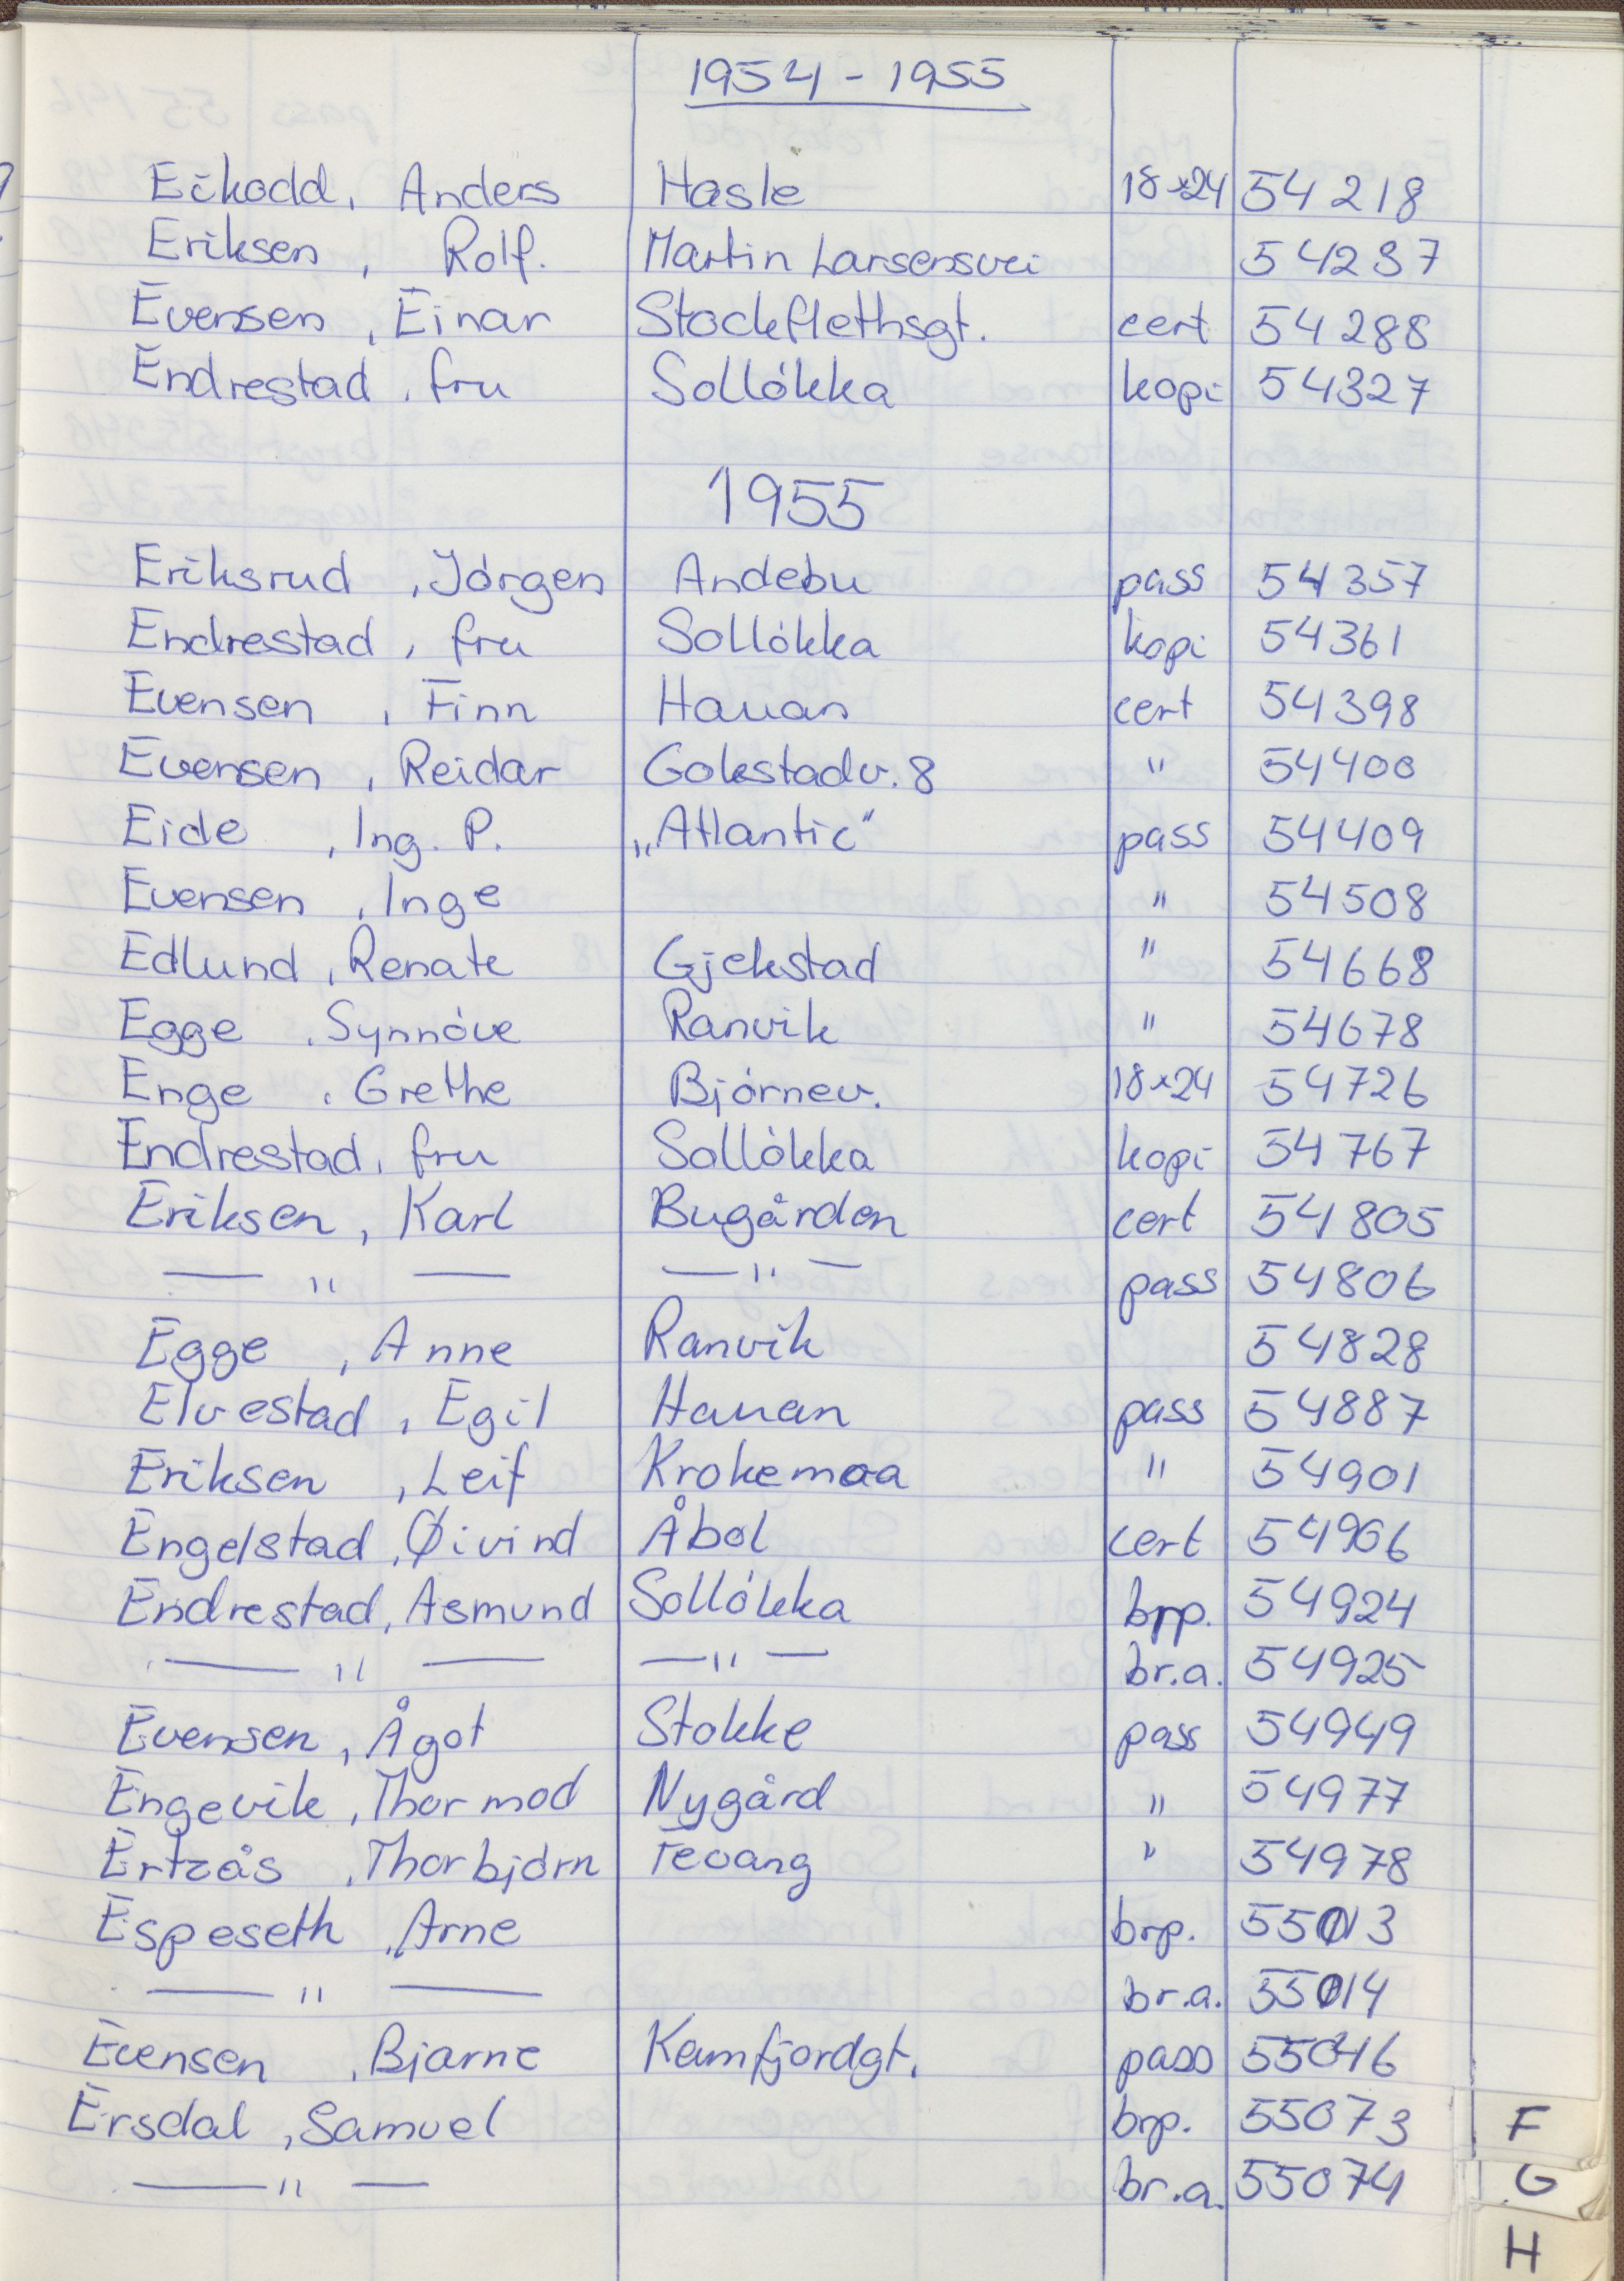 1954 - 1955
Eikodd, Anders Hasle 18x24 54218
Eriksen, Rolf. Martin Larsensvei 54237
Evensen, Einar Stockflethsgt. cert 54288
Endrestad, fru Solløkka kopi 54327
1955
Eriksrud, Jørgen Andebu pass 54357
Endrestad, fru Solløkka kopi 54361
Evensen, Finn Hauan cert 54398
Evensen, Reidar Gokstadv. 8 " 54400
Eide, Ing. P. „Atlantic" pass 54409
Evensen, Inge " 54508
Edlund, Renate Gjekstad " 54668
Egge, Synnøve Ranvik " 54678
Enge, Grethe Bjørnev. 18x24 54726
Endrestad, fru Solløkka kopi 54767
Eriksen, Karl Bugården cert 54805
— " — — " — pass 54806
Egge, Anne Ranvik 54828
Elvestad, Egil Hauan pass 54887
Eriksen, Leif Krokemoa " 54901
Engelstad, Øivind Åbol cert 54906
Endrestad, Asmund Solløkka brp. 54924
— " — — " — br.a. 54925
Evensen, Ågot Stokke pass 54949
Engevik, Thormod Nygård " 54977
Ertzås, Thorbjørn Tevang " 54978
Espeseth, Arne brp. 55013
— " — br.a. 55014
Evensen, Bjarne Kamfjordgt. pass 55046
Ersdal, Samuel brp. 55073
— " — br.a. 55074
F
G
H